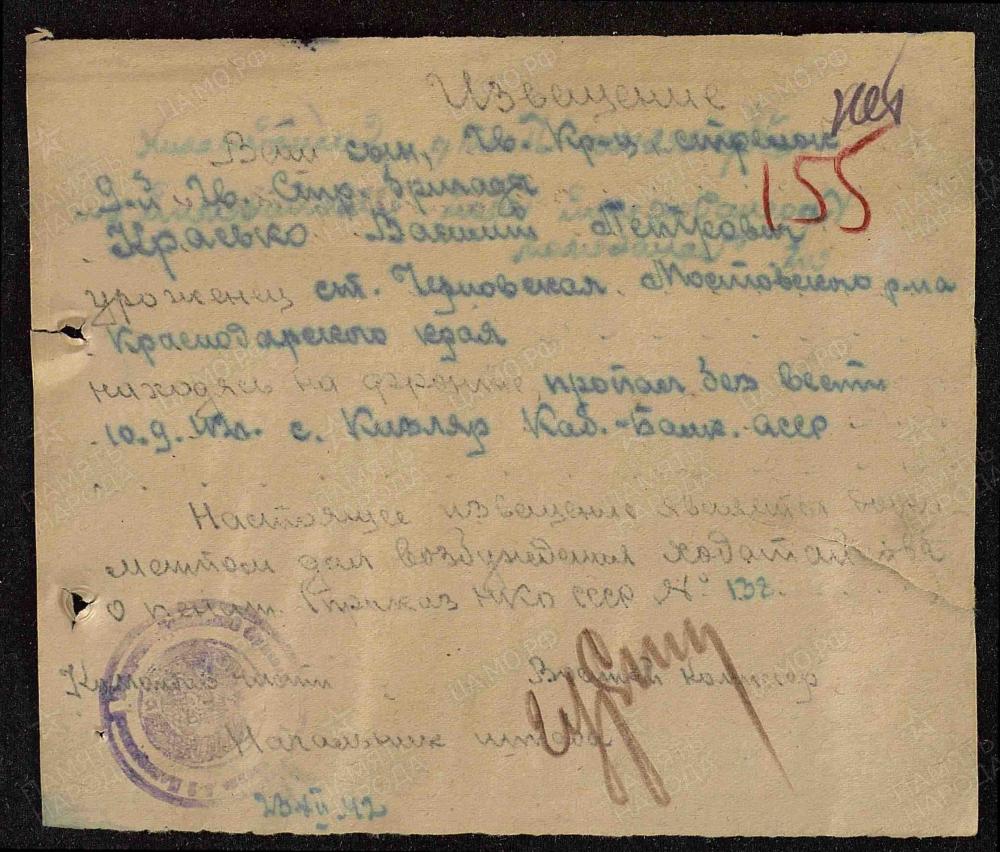 Извещение
155
Ваш сын, Гв. Кр-ц стрелок
9-й Гв. Стр. бригады
Красько Василий Петрович
уроженец ст. Мостовского р-на
Краснодарского края
находясь на фронте пропал без вести
10.9.42г. с. Кизляр Каб.-Балк. АССР
Настоящее извещение является доку-
ментом для возбуждения ходатайства
о пенсии (приказ НКО СССР №
Командир части Военный комиссар
Начальник штаба
ПАМЯТЬ НАРОДА
ЦАМО.РФ